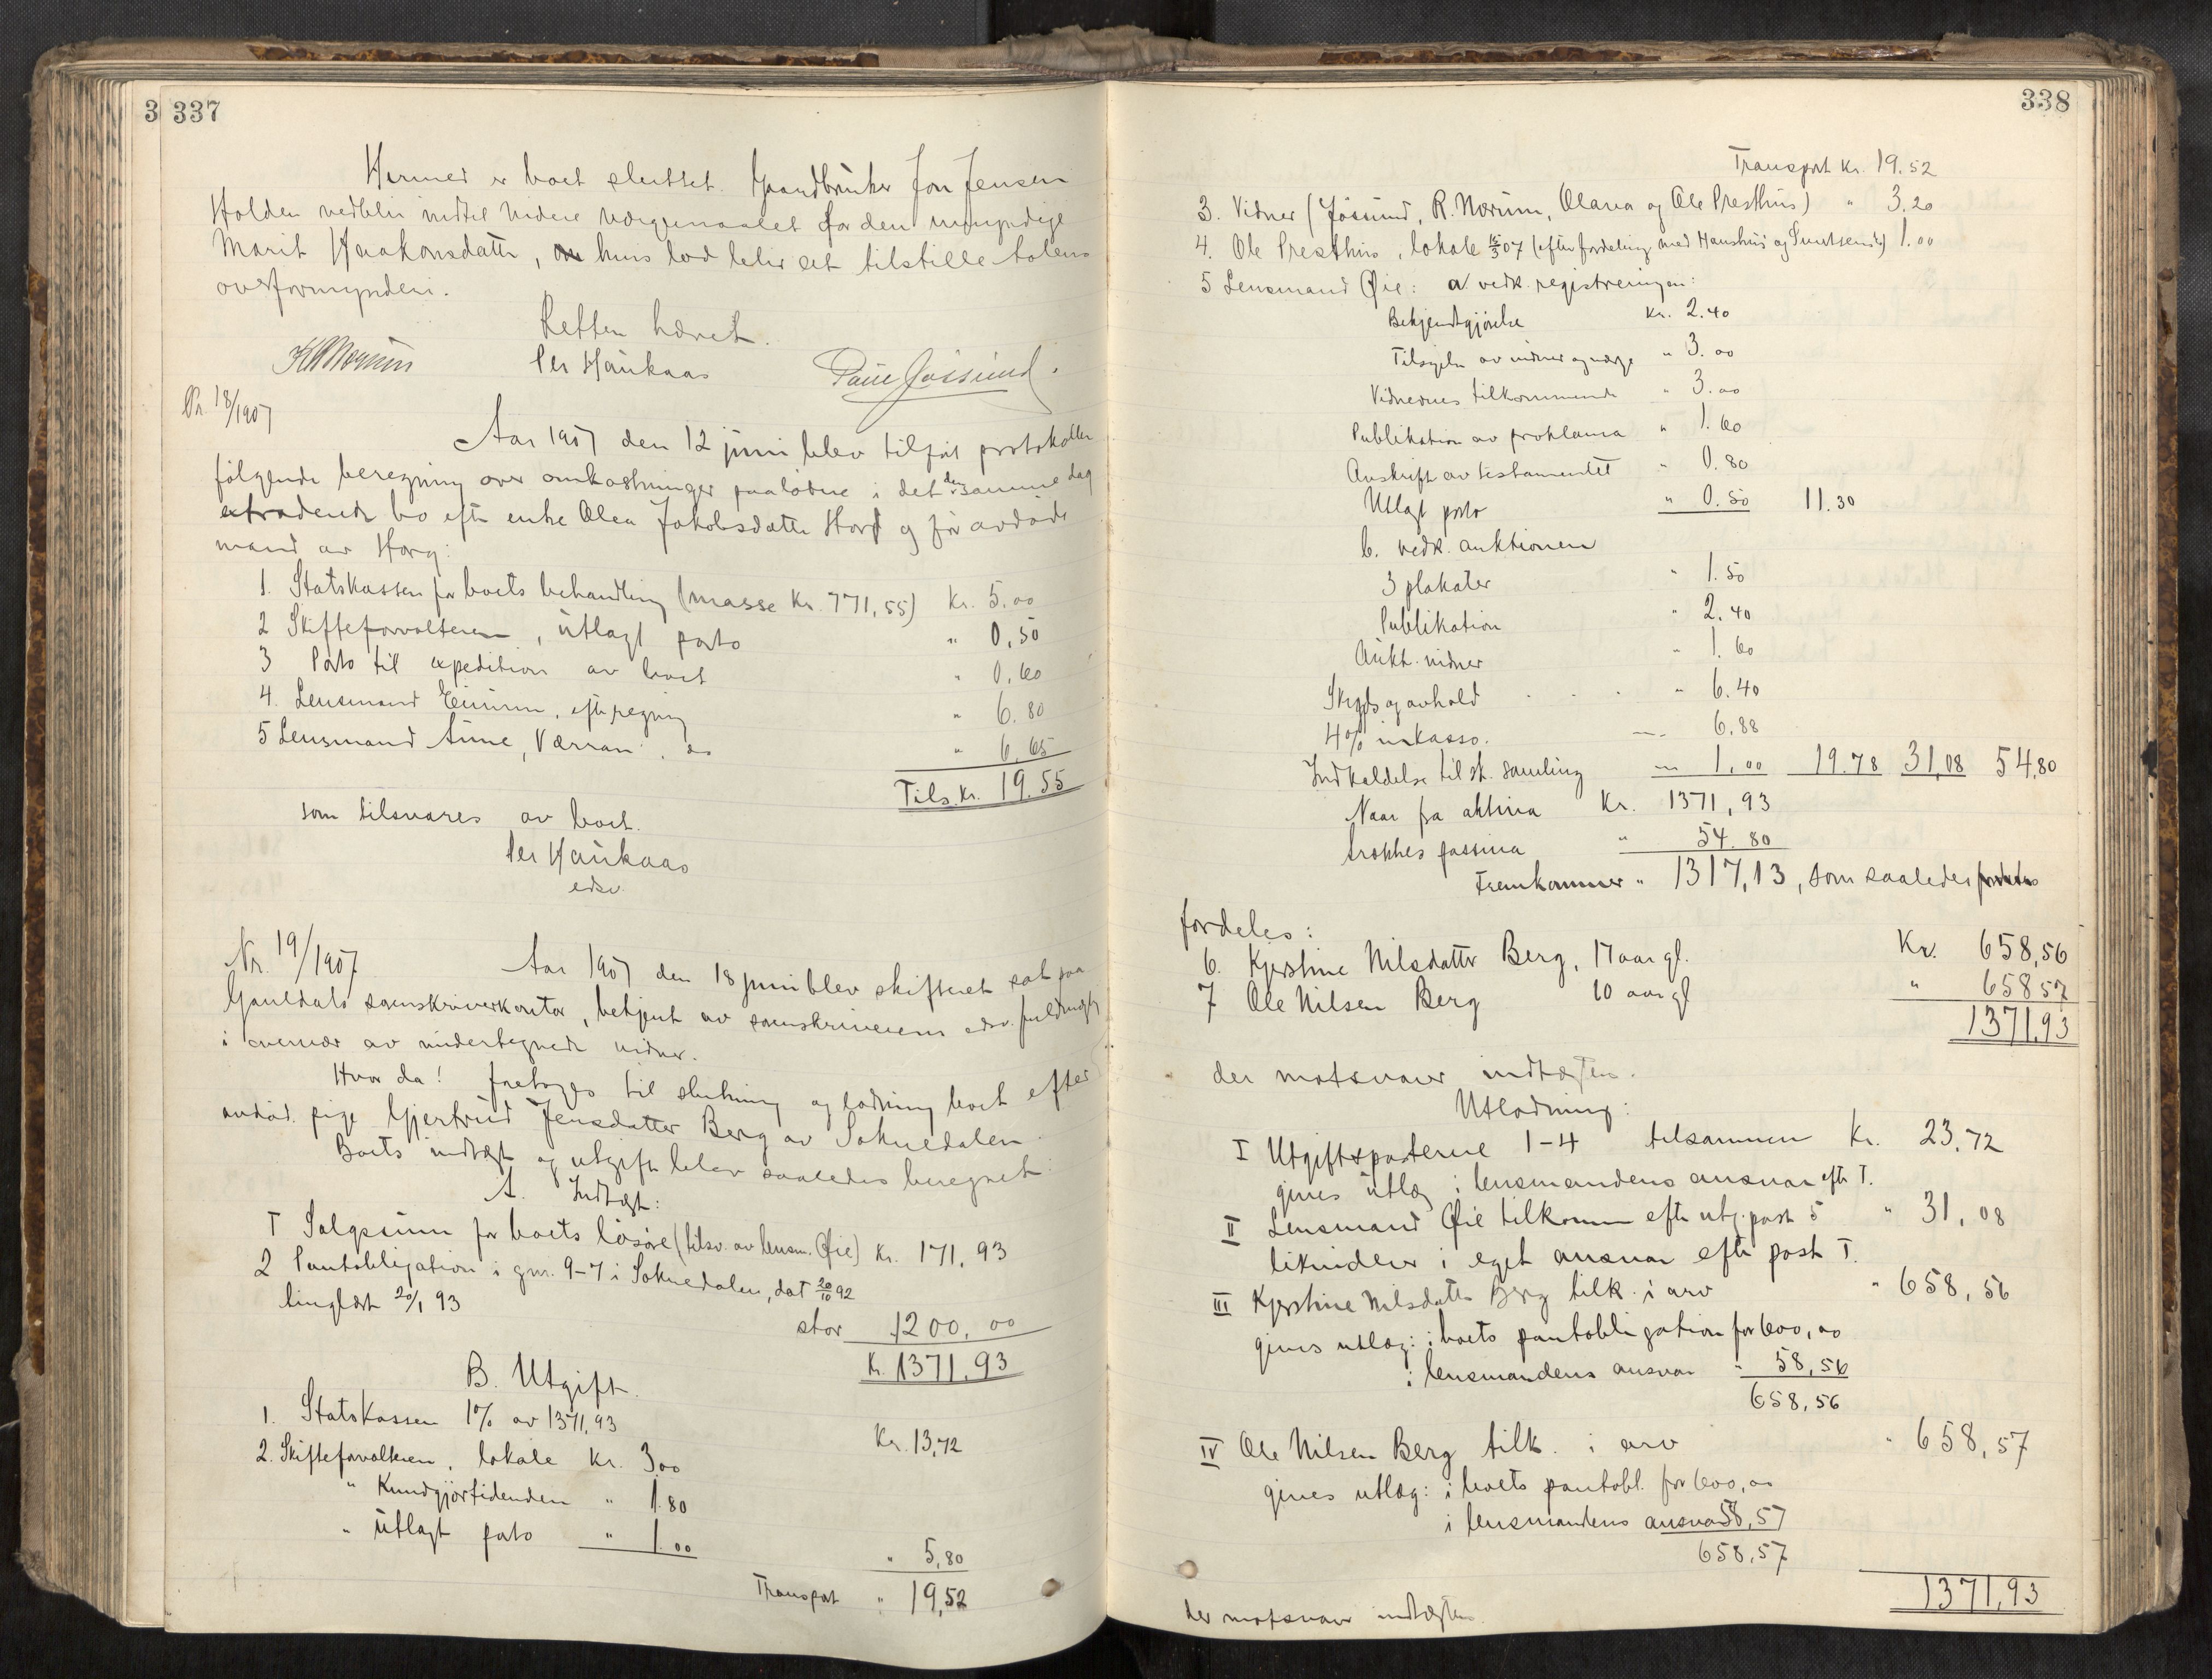 3 337
Hermed er boet sluttet. Gaardbruker Jon Jensen
Holden vedblir indtil videre værgemaalet for den umyndige
Marit Haakonsdatter, hvis lod blir at tilstille Holens
overformynderi.
Retten hævet.
Per Haukaas
Paul Jøssund.
Nr. 18/1907
Aar 1907 den 12 juni blev tilført protokollen
følgende beregning over omkostninger paaløbne i det den samme dag
extraderede bo efter enke Olea Jakobsdatter Horg og før avdøde
mand av Horg:
1. Statskassen for boets behandling (masse Kr. 771,55) Kr. 5.00
2 Skifteforvalteren, utlagt porto " 0,50
3 Porto til expedition av boet " 0,60
4. Lensmand Eimin, efter regning " 6.80
5 Lensmand Aune, Værran. do " 6,65
Tils. Kr. 19.55
som tilsvares av boet.
Per Haukaas
edsv.
Nr. 19/1907
Aar 1907 den 18 juni blev skifteret sat paa
Gauldals sorenskriverkontor, betjent av sorenskriverens edsv. fuldmægtig
i overvær av undertegnede vidner.
Hvor da! foretoges til slutning og lodning boet efter
avdød pige Gjertrud Jensdatter Berg av Soknedalen.
Boets indtægt og utgift blev saaledes beregnet:
A. Indtægt:
I Salgssum for boets løsøre (tilsv. av lensm. Øie) Kr. 171,93
2 Pantobligation i gnr. 9-7 i Soknedalen, dat 20/10 92
tinglæst 20/1 93
stor 1200,00
Kr. 1371,93
B. Utgift.
1. Statskassen 1% av 1371,93 Kr. 13,72
2. Skifteforvalteren, lokale Kr. 3,00
" Kundgjørtidenden " 1.80
" utlagt porto " 1.00
" 5,80
Transport " 19,52
338
Transport Kr. 19.52
3. Vidner (Jøssund, R. Norum, Olava og Ole Presthus) " 3,20
4. Ole Presthus, lokale 15/3 07 (efter fordeling med Haushus og ) 1.00
5 Lensmand Øie: a vedk. registreringen:
Bekjendtgjørelse Kr. 2.40
Tilsigeln av vidner og værge " 3.00
Vidnernes tilkommende " 3.00
Publikation av proklama " 1.60
Avskrift av testamentet " 0.80
Utlagt porto " 0.50 11.30
b. vedk. auktionen
3 plakater " 1.50
Publikation " 2.40
Aukt. vidner " 1.60
Skyds og avhold " 6.40
4% inkasso. 6.88
Indkaldelse til sk. samling 1,00 19.78 31,08 54,80
Naar fra aktiva Kr. 1371,93
trækkes passiva " 54.80
Fremkommer " 1317,13, som saaledes
fordeles:
6. Kjerstine Nilsdatter Berg, 17 aar gl. Kr. 658,56
7 Ole Nilsen Berg 10 aar gl " 658 57
1371,93
der motsvarer indtægten.
Utlodning:
I Utgiftsposterne 1-4 tilsammen Kr. 23,72
gives utlæg i lensmandens ansvar efter I.
II Lensmand Øie tilkommer efter utg. post 5 " 31,08
likviderer i eget ansvar efter post I.
III Kjerstine Nilsdatter Berg tilk. i arv " 658,56
gives utlæg: i boets pantobligation for 600,00
i lensmandens ansvar " 58,56
658,56
IV Ole Nilsen Berg tilk. i arv " 658,57
gives utlæg: i boets pantobl. for 600,00
i lensmandens ansvar 58,57
658,57
1371,93
der motsvarer indtægten.